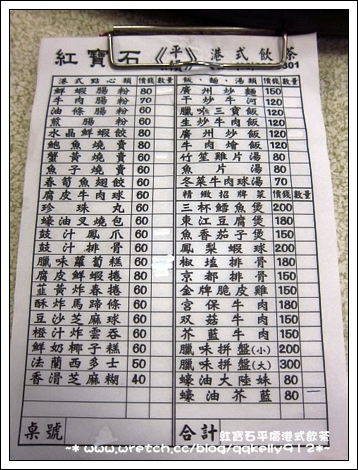 紅寶石《平價》港式飲茶
301
港式點心類 價錢 數量
鮮蝦腸粉 80
牛肉腸粉 70
油條腸粉 60
煎腸粉 60
水晶鮮蝦餃 80
鮑魚燒賣 60
蟹黃燒賣 60
魚子燒賣 60
春筍魚翅餃 60
腐皮牛肉球 60
珍珠丸 60
蠔油叉燒包 60
鼓汁鳳爪 60
鼓汁排骨 60
臘味蘿蔔糕 60
腐皮鮮蝦捲 80
韮黃炸春捲 60
酥炸馬蹄條 60
豆沙芝麻球 60
橙汁炸雲吞 60
鮮奶椰子糕 60
法蘭西多士 50
香滑芝麻糊 40
桌號
飯、麵、湯類 價錢 數量
廣州炒麵 150
干炒牛河 120
臘味三寶飯 120
生炒牛肉飯 120
廣州炒飯 120
牛肉燴飯 120
竹笙雞片湯 80
魚片湯 80
冬菜牛肉球湯 70
精緻招牌菜 價錢 數量
三杯鱈魚煲 200
東江豆腐煲 180
魚香茄子煲 150
鳳梨蝦球 200
椒塩排骨 180
京都排骨 150
金牌脆皮雞 150
宮保牛肉 180
双菇牛肉 150
芥藍牛肉 180
臘味拼盤(小) 200
臘味拼盤(大) 300
蠔油大陸妹 80
蠔油芥藍 80
合計
紅寶石平價港式飲茶
~* www.wretch.cc/blog/qqkelly912*~